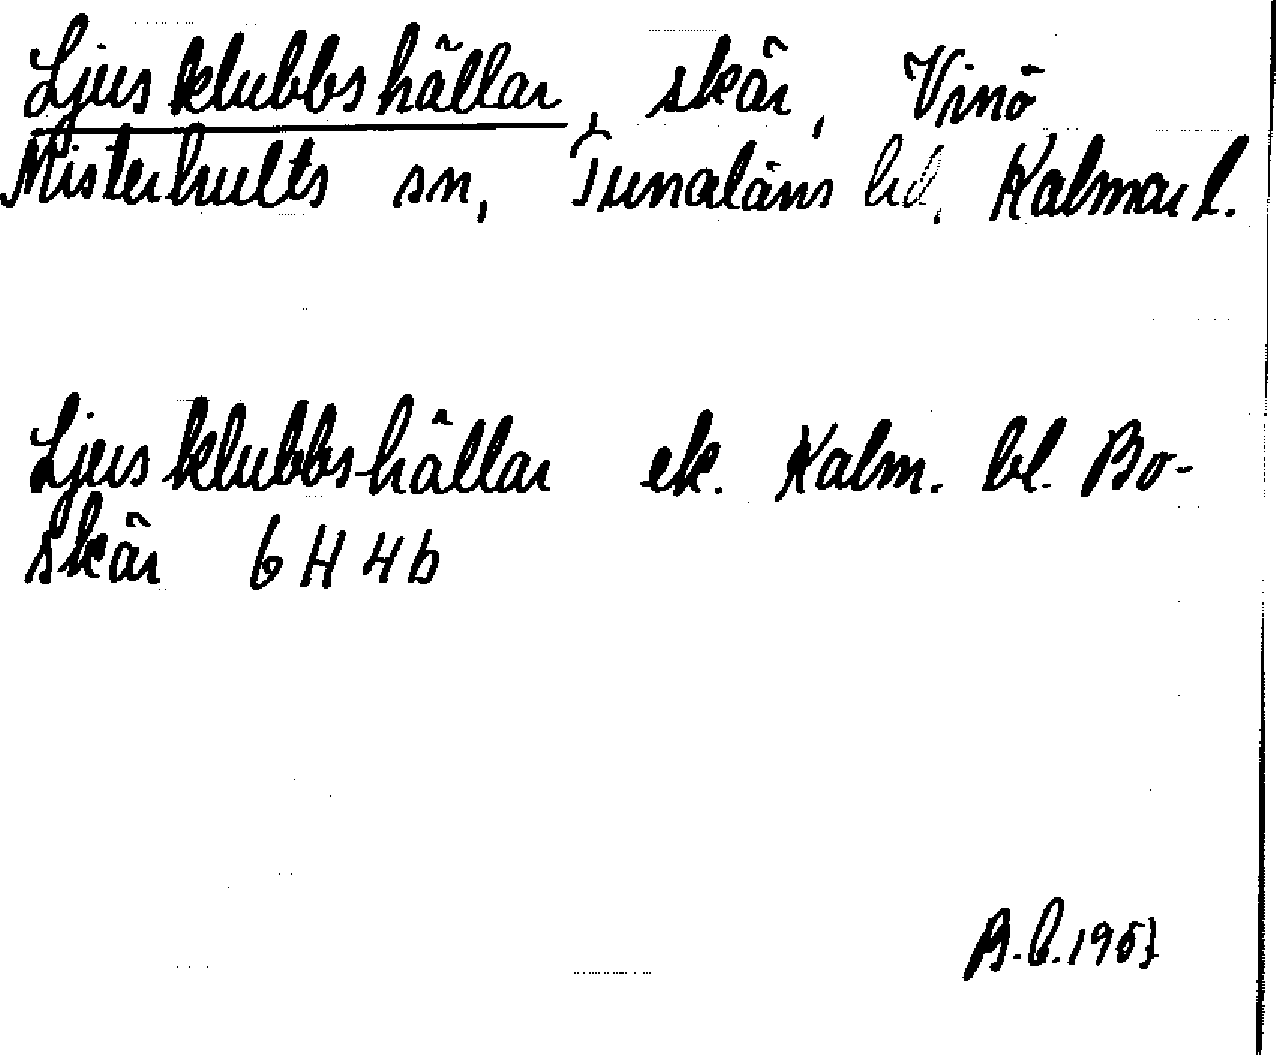 Ljusklubbshällar, skär, Vinö
Misterhults sn, Tunaläns hd, Kalmar l.
Ljusklubbshällar ek. Kalm. bl. Bo-
skär 6H4b